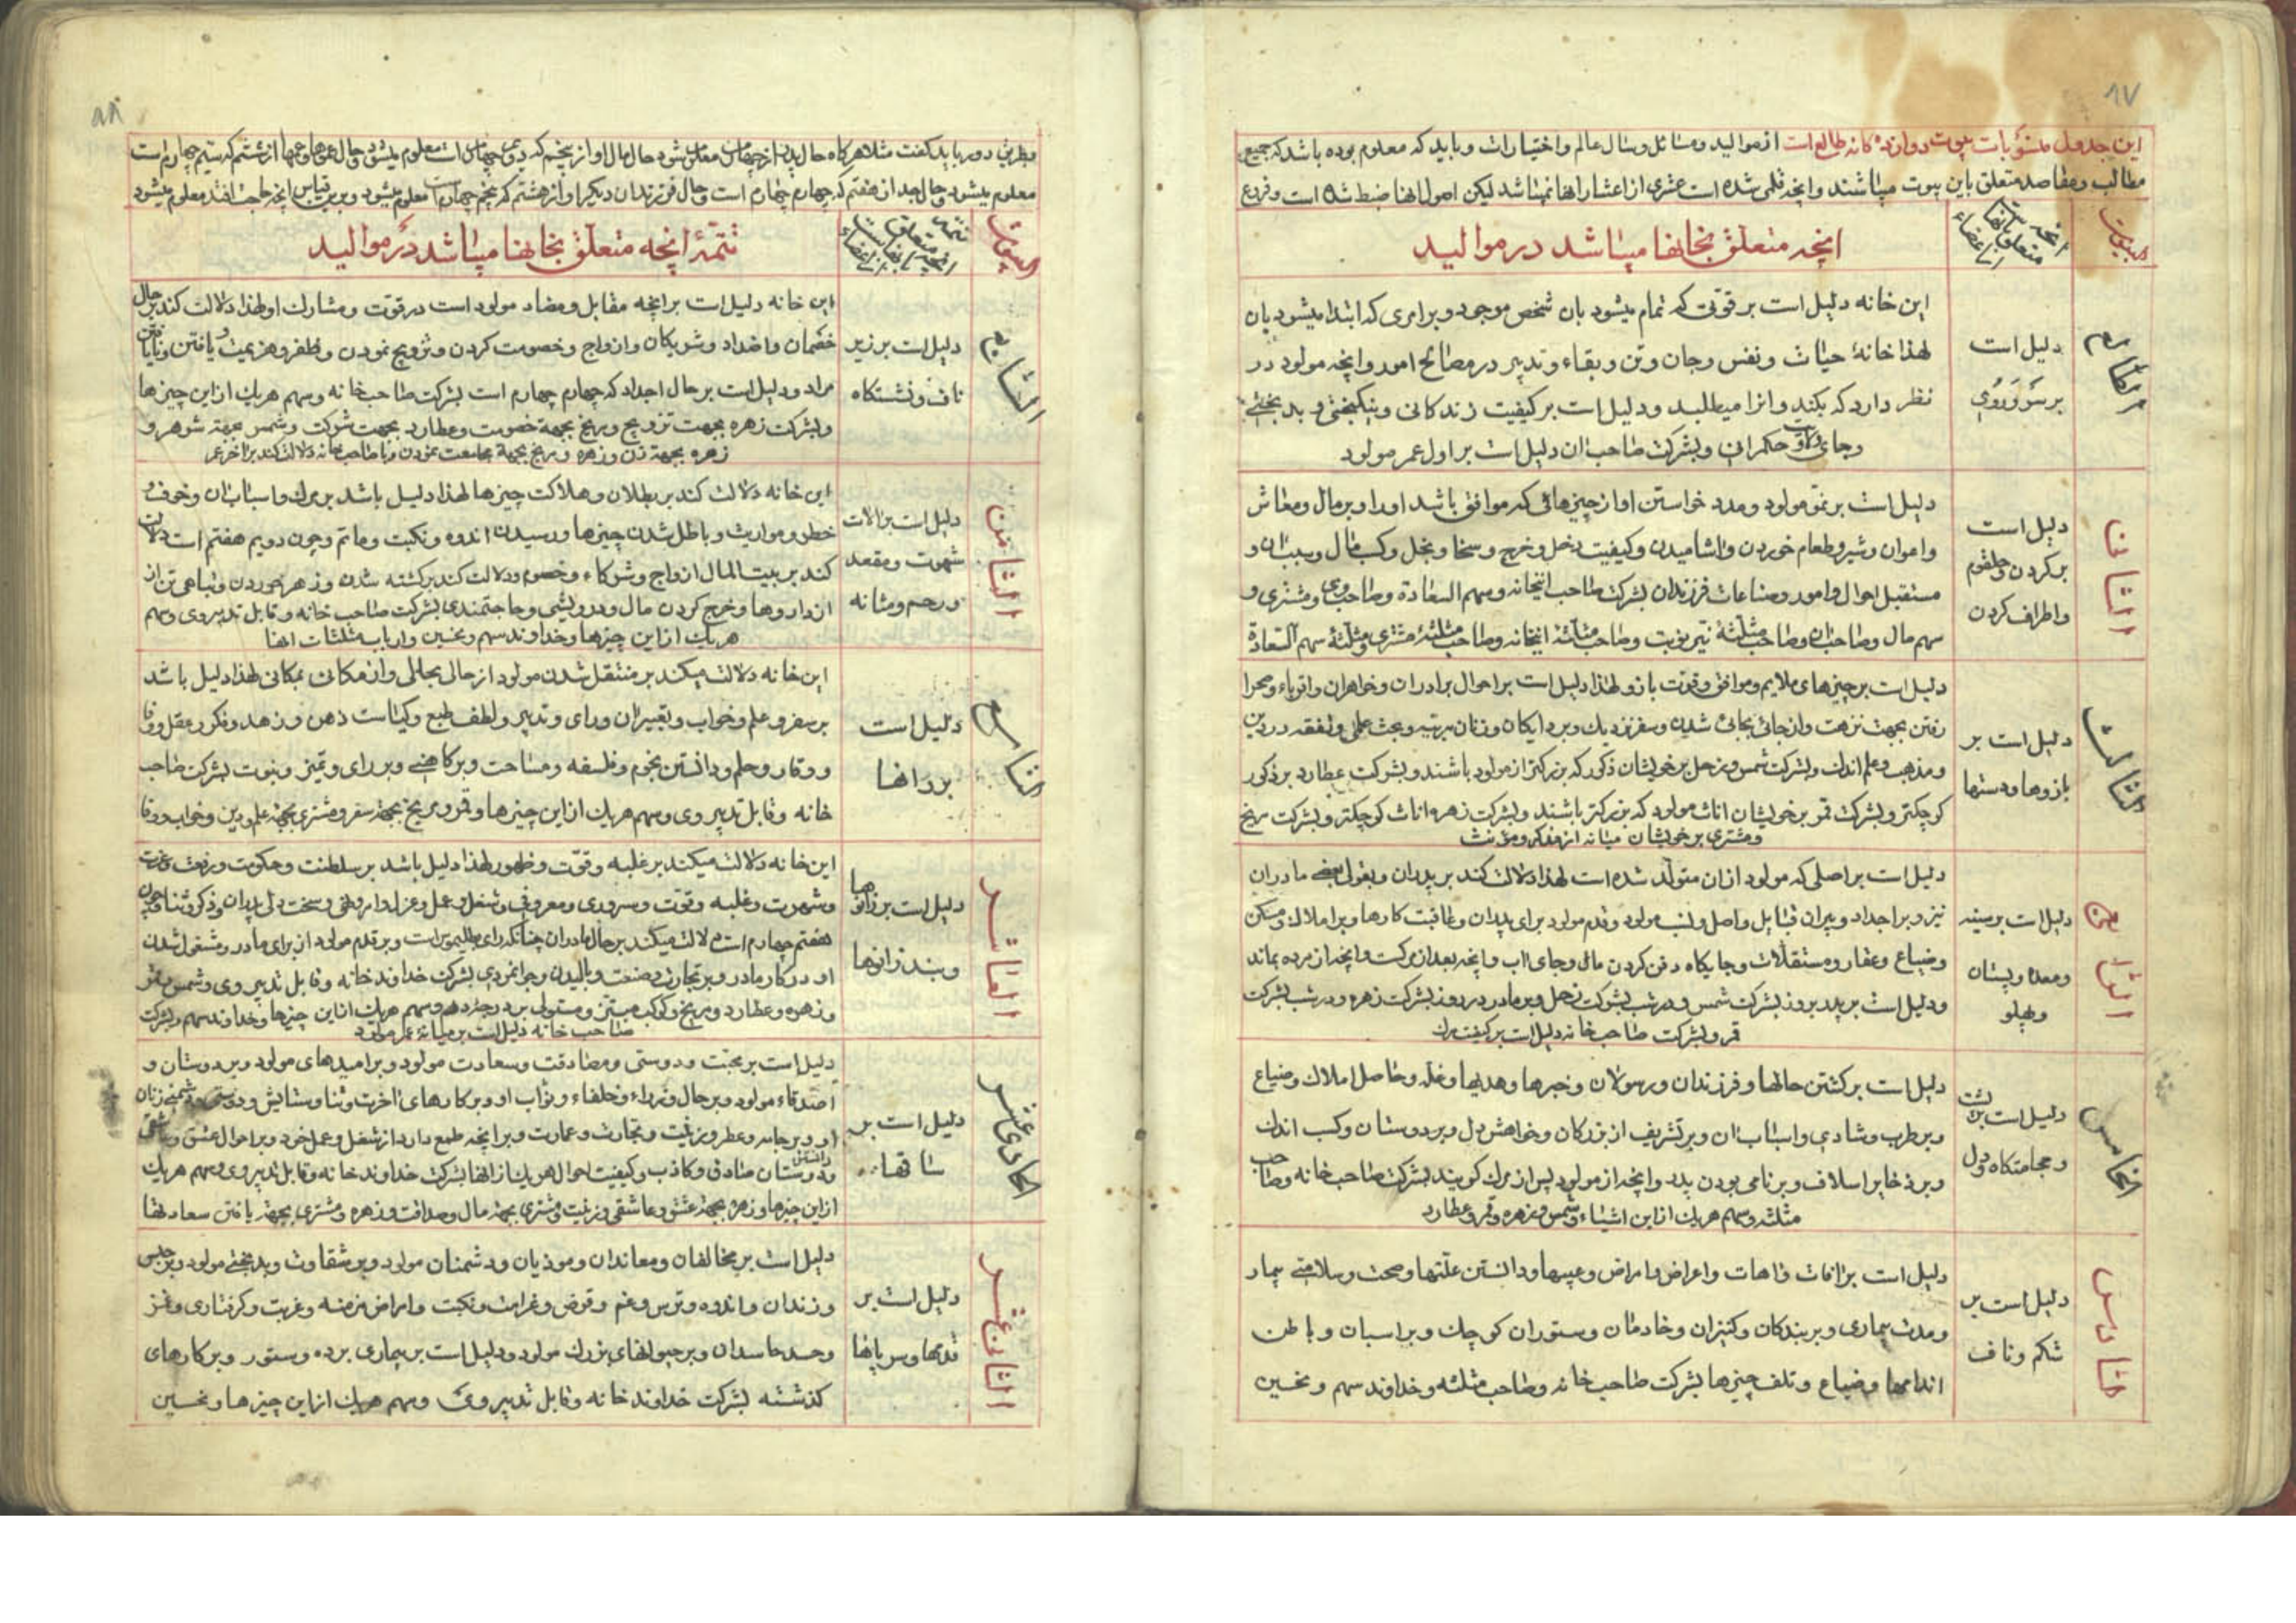 ٨٧
این جدول منسوبات بیوت دوازده کانه طالع است از موالید و مسائل و سال عالم و اختیارات و باید که معلوم بوده باشد که جمیع
مطالب و مقاصد متعلق باین بیوت میباشند و انچه قلمی شده است عشری از اعشار انها نمیباشد لیکن اصول انها ضبط شده است و فروع
البیوت
انچه متعلق بانها است از اعضاء
انچه متعلق بخانها میباشد در موالید
الطالع
دلیل است
بر سر و روی
این خانه دلیل است بر قوتی که تمام میشود بان شخص موجود و بر امری که ابتدا میشود بان
لهذا خانهٔ حیات و نفس و جان و تن و بقاء و تدبیر در مصالح امور و انچه مولود در
نظر دارد که بکند و انرا میطلبد و دلیل است بر کیفیت زندکانی و نیکبختی و بدبختی
وجای حکمرانی و بشرکت صاحب ان دلیل است بر اول عمر مولود
الثانی
دلیل است
بر کردن و حلقوم
و اطراف کردن
دلیل است بر نمو مولود و مدد خواستن او از چیزهائی که موافق باشد او را و بر مال و معاش
و اعوان و شیر و طعام خوردن و اشامیدن و کیفیت دخل و خرج و سخا و بخل و کسب مال و سبب ان و
مستقبل احوال و امور و صناعات فرزندان بشرکت صاحب اینخانه و سهم السعادة و صاحب وی و مشتری و
سهم مال و صاحب ان و صاحب مثلثهٔ نیر نوبت و صاحب مثلثهٔ اینخانه و صاحب مثلثهٔ مشتری و مثلثهٔ سهم السعادة
الثالث
دلیل است بر
بازوها و دستها
دلیل است بر چیزهای ملایم و موافق و قوت بازو لهذا دلیل است بر احوال برادران و خواهران و اقرباء و صحرا
رفتن بجهت نزهت و از جائی بجائی شدن و سفر نزدیک و بر دایکان و زنان مرتبه و بحث علمی و تفقه در دین
و مذهب و علم اندک و بشرکت شمس و زحل بر خویشان ذکور که بزرکتر از مولود باشند و بشرکت عطارد بر ذکور
کوچکتر و بشرکت قمر بر خویشان اناث مولود که بزرکتر باشند و بشرکت زهره اناث کوچکتر و بشرکت مریخ
و مشتری بر خویشان میانه از مذکر و مؤنث
الرابع
دلیل است بر سینه
و معده و پستان
و پهلو
دلیل است بر اصلی که مولود از ان متولد شده است لهذا دلالت کند بر پدران و بقول بعضی مادران
نیز و بر اجداد و پیران قبایل و اصل و نسب مولود و قدم مولود برای پدران و عاقبت کارها و بر املاک و مسکن
و ضیاع و عقار و مستقلات و جایکاه دفن کردن مال و جای اب و انچه بعد از مرکست و انچه از مرده بماند
و دلیل است بر پدر بروز بشرکت شمس و در شب بشرکت زحل و بر مادر در روز بشرکت زهره و در شب بشرکت
قمر و بشرکت صاحب خانه دلیل است بر کیفیت مرک
الخامس
دلیل است بر پشت
و مجامعتکاه و دل
دلیل است بر کشتن حالها و فرزندان و رسولان و خبرها و هدیها و غله و حاصل املاک و ضیاع
و بر طرب و شادی و اسباب ان و بر تشریف از بزرکان و خواهش دل و بر دوستان و کسب اندک
و بر ذخایر اسلاف و بر نامی بودن پدر و انچه از مولود پس از مرک کویند بشرکت صاحب خانه و صاحب
مثلثه و سهم هر یک از این اشیاء و شمس و زهره و قمر و عطارد
السادس
دلیل است بر
شکم و ناف
دلیل است بر افات و عاهات و اعراض و امراض و عیبها و دانستن علتها و صحت و سلامتی بیمار
و مدت بیماری و بر بندکان و کنیزان و خادمان و ستوران کوچک و بر اسبان و باطن
اندامها و ضیاع و تلف چیزها بشرکت صاحب خانه و صاحب مثلثه و خداوند سهم و نحسین
٨٨
و بطریق دور باید کفت مثلا هر کاه حال پدر از چهارم معلوم شود حال مال او از پنجم که دویم چهارم است معلوم میشود و حال عموها و عمها از ششم که سیم چهارم است
معلوم میشود و حال جد از هفتم که چهارم چهارم است و حال فرزندان دیکر او از هشتم که پنجم چهارم است معلوم میشود و برین قیاس انچه حاجت افتد معلوم میشود
البیوت
تتمه انچه متعلق بانها است از اعضاء
تتمهٔ انچه متعلق بخانها میباشد در موالید
السابع
دلیل است بر زیر
ناف و نشستکاه
این خانه دلیل است بر انچه مقابل و مضاد مولود است در قوت و مشارک او لهذا دلالت کند بر حال
خصمان و اضداد و شریکان و ازواج و خصومت کردن و تزویج نمودن و ظفر و هزیمت و یافتن و نایافتن
مراد و دلیل است بر حال اجداد که چهارم چهارم است بشرکت صاحب خانه و سهم هر یک از این چیزها
و بشرکت زهره بجهت تزویج و مریخ بجهة خصومت و عطارد بجهت شرکت و شمس بجهة شوهر و
زهره بجهة زن و زهره و مریخ بجهة مجامعت نمودن و با صاحب خانه دلالت کند بر اخر عمر
الثامن
دلیل است بر الات
شهوت و مقعد
و رحم و مثانه
این خانه دلالت کند بر بطلان و هلاکت چیزها لهذا دلیل باشد بر مرک و اسباب ان و خوف و
خطر و مواریث و باطل شدن چیزها و رسیدن اندوه و نکبت و ماتم و چون دویم هفتم است دلالت
کند بر بیت المال ازواج و شرکاء و خصوم و دلالت کند بر کشته شدن و زهر خوردن و تباهی تن از
از داروها و خرج کردن مال و درویشی و حاجتمندی بشرکت صاحب خانه و قابل تدبیر وی و سهم
هر یک از این چیزها و خداوند سهم و نحسین و ارباب مثلثات انها
التاسع
دلیل است
بر رانها
این خانه دلالت میکند بر منتقل شدن مولود از حالی بحالی و از مکانی بمکانی لهذا دلیل باشد
بر سفر و علم و خواب و تعبیر ان و رای و تدبیر و لطف طبع و کیاست ذهن و زهد و فکر و عقل و وفا
و وقار و حلم و دانستن نجوم و فلسفه و مساحت و بر کاهنی و بر رای و تمیز و نبوت بشرکت صاحب
خانه و قابل تدبیر وی و سهم هر یک از این چیزها و قمر و مریخ بجهة سفر و مشتری بجهة علم و دین و خواب و وفا
العاشر
دلیل است بر زانوها
و بند زانوها
این خانه دلالت میکند بر غلبه و قوت و ظهور لهذا دلیل باشد بر سلطنت و حکومت و رفعت و عزت
و شهرت و غلبه و قوت و سروری و معروفی و شغل و عمل و عزل و امر و نهی و سخت دلی پدران و ذکر و ثنا و چون
هفتم چهارم است دلالت میکند بر حال مادران چنانکه رای بطلیموس است و بر قدم مولود از برای مادر و مشغول شدن
او در کار مادر و بر تجارت و صنعت و بالیدن و جوانمردی بشرکت خداوند خانه و قابل تدبیر وی و شمس و قمر
و زهره و عطارد و مریخ و کوکب مبتز و مستولی بر درجه دهم و سهم هر یک از این چیزها و خداوند سهم و بشرکت
صاحب خانه دلیل است بر میانهٔ عمر مولود
الحادی عشر
دلیل است بر
ساقها
دلیل است بر محبت و دوستی و مصادقت و سعادت مولود و بر امیدهای مولود و بر دوستان و
اصدقاء مولود و بر حال وزراء و خلفاء و نواب او و بر کارهای اخرت و ثنا و ستایش و دوستی و دشمنی زنان
او و بر جامه و عطر و زینت و تجارت و عمارت و بر انچه طمع دارد از شغل و عمل خود و بر احوال عشق و عاشقی
و دانستن دوستان صادق و کاذب و کیفیت احوال هر یک از انها بشرکت خداوند خانه و قابل تدبیر وی و سهم هر یک
از این چیزها و زهره بجهة عشق و عاشقی و زینت و مشتری بجهة مال و صداقت و زهره و مشتری بجهة یافتن سعادتها
الثانی عشر
دلیل است بر
قدمها و سر پایها
دلیل است بر مخالفان و معاندان و موذیان و دشمنان مولود و بر شقاوت و بدبختی مولود و بر حبس
و زندان و اندوه و ترس و غم و قرض و غرامت و نکبت و امراض مزمنه و غربت و کرفتاری و غمز
و حسد حاسدان و بر حیوانهای بزرک مولود و دلیل است بر بیماری برده و ستور و بر کارهای
کذشته بشرکت خداوند خانه و قابل تدبیر وی و سهم هر یک از این چیزها و نحسین